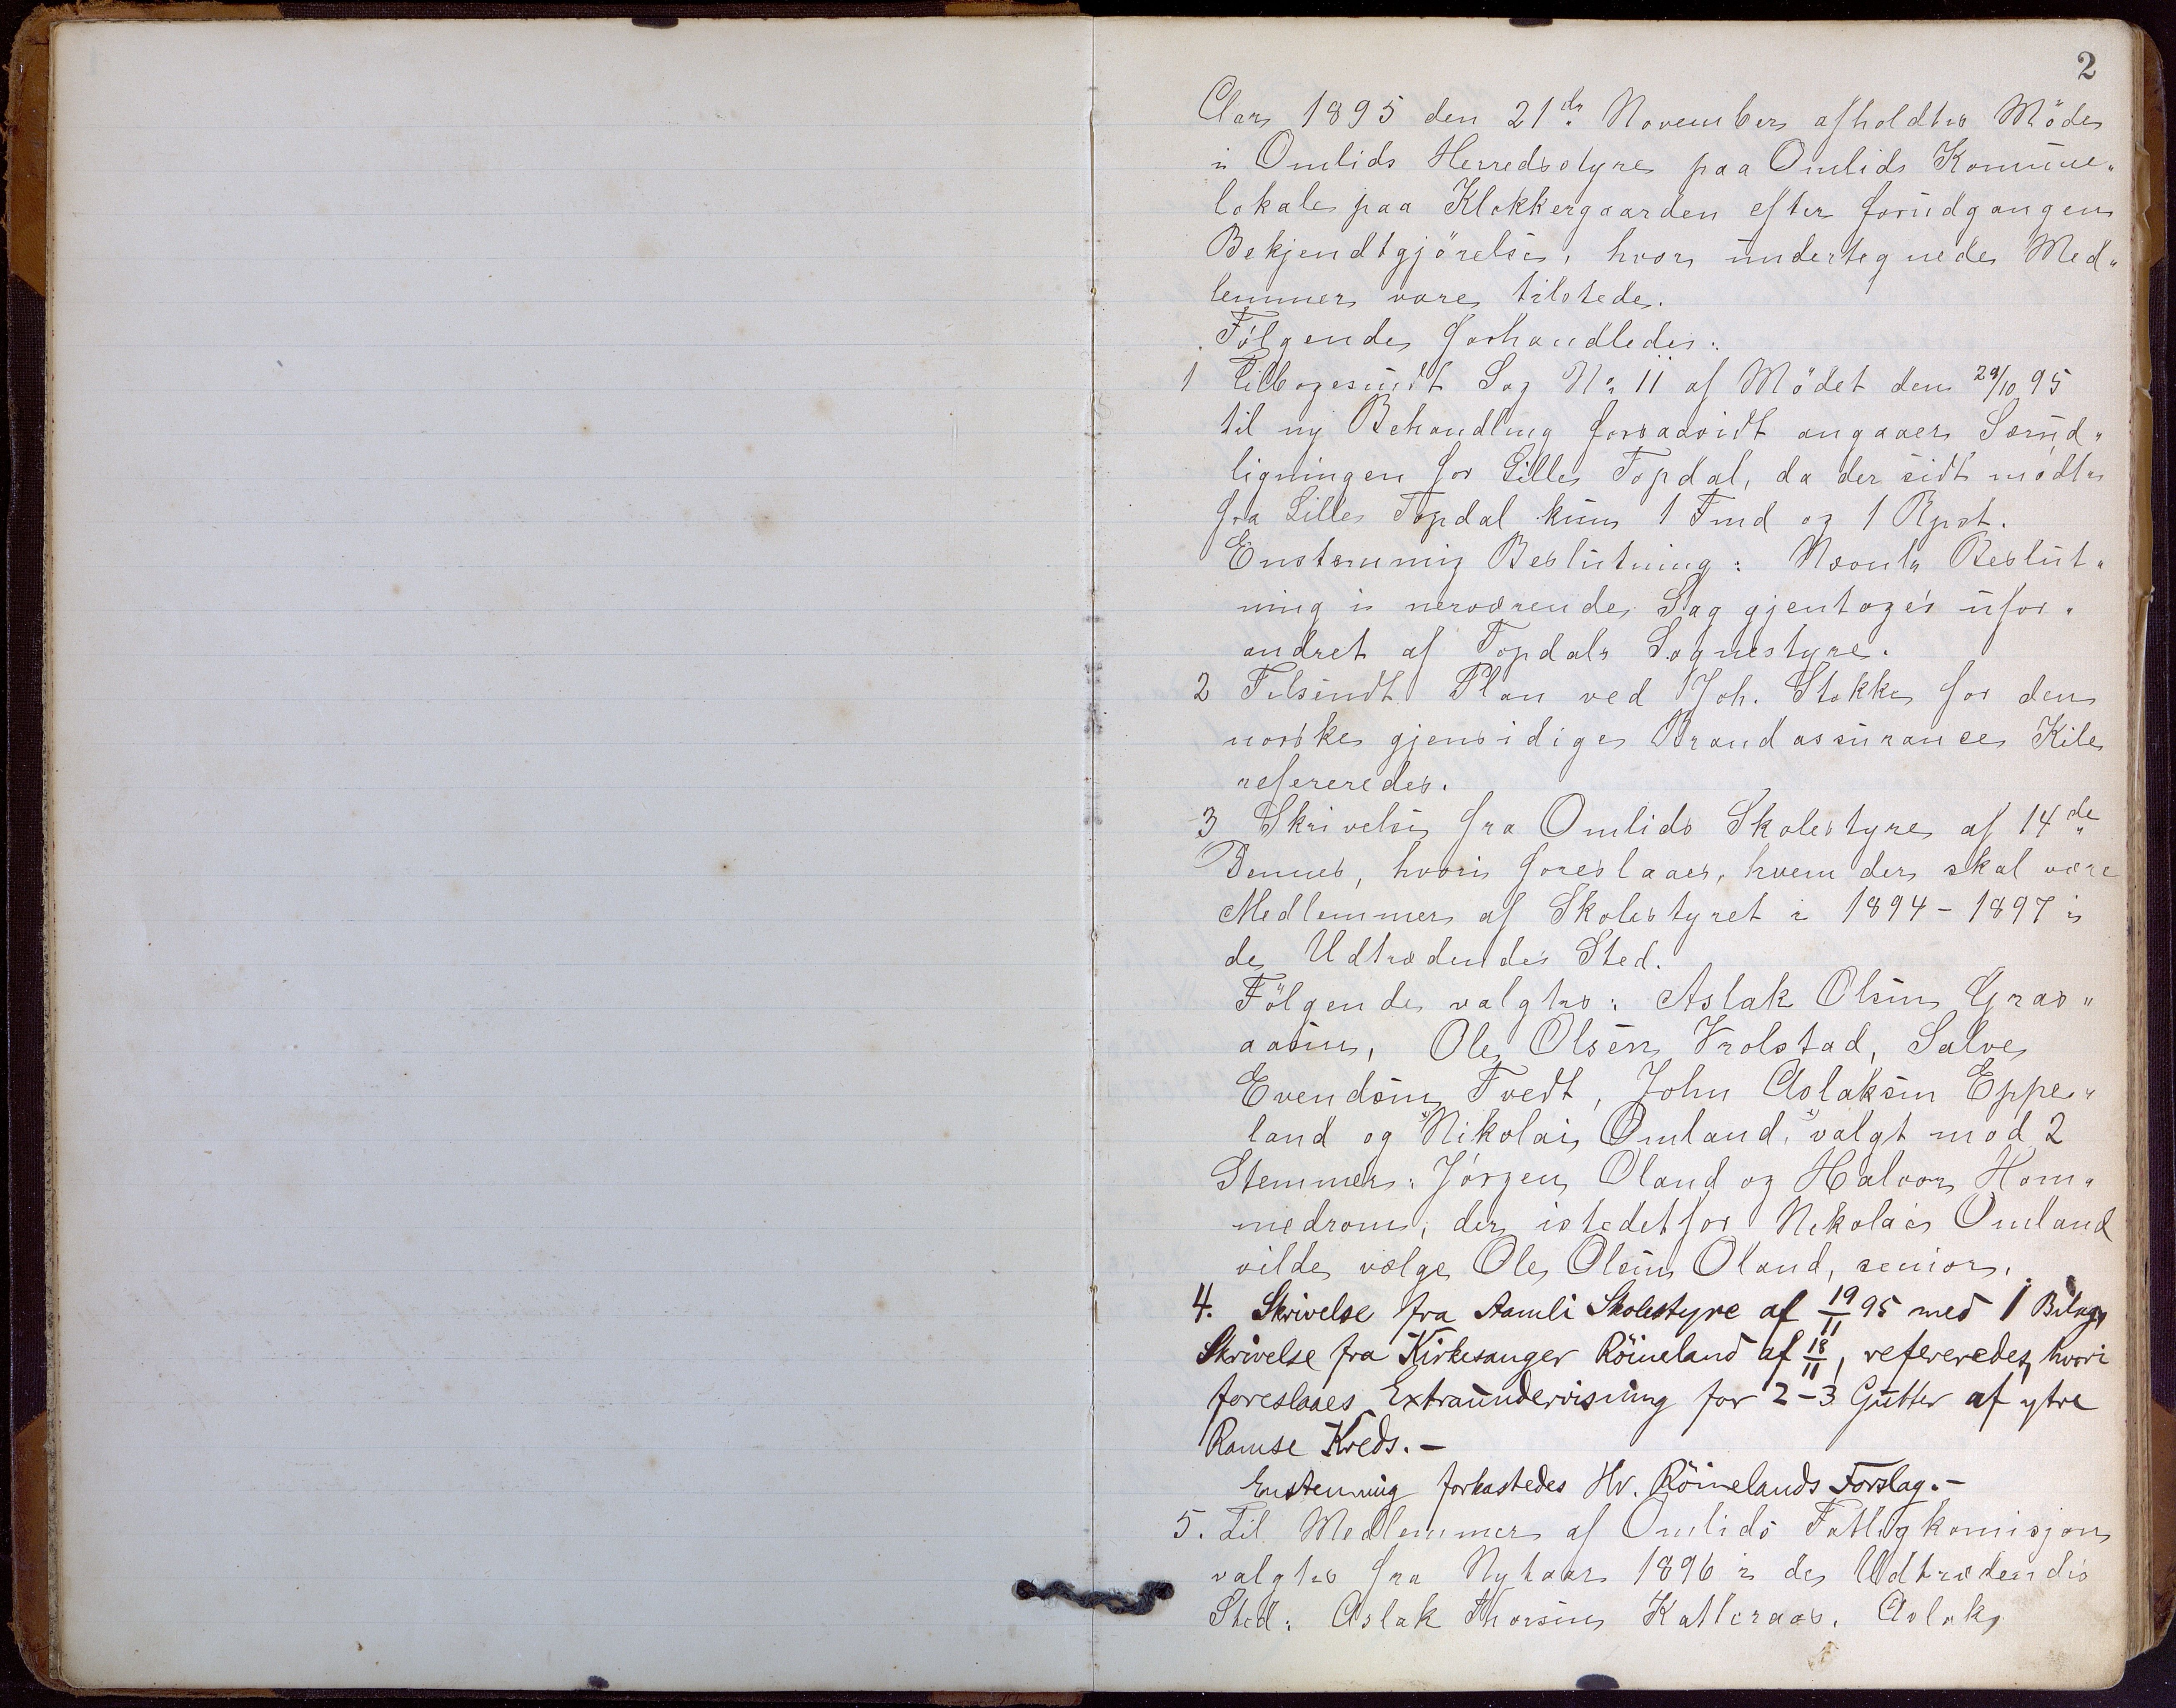 2
Aar 1895 den 21de November afholdtes Möde
i Omlids Herredsstyre paa Omlids Kommune„
lokale paa Klokkergaarden efter forudgangen
Bekjendtgjörelse, hvor undertegnede Med„
lemmer vare tilstede.
Fölgende forhandledes:
1 Tilbagesendt Sag No 11 af Mödet den 29/10 95
til ny Behandling forsaavidt angaaer Særud„
ligningen for Lille Topdal, da der sidst mödte
fra Lille Topdal kun 1 Fmd og 1 Rpst.
Enstemmig Beslutning: Nævnte Beslut„
ning i nerværende Sag gjentages ufor„
andret af Topdals Sognestyre.
2 Tilsendt Plan ved Joh. Stokke for den
norske gjensidige Brandassurance Kile
refereredes.
3 Skrivelse fra Omlids Skolestyre af 14de
Dennes, hvori foreslaaes, hvem der skal være
Medlemmer af Skolestyret i 1894-1897 i
de Udtrædendes Sted.
Fölgende valgtes: Aslak Olsen Gras„
aasen, Ole Olsen Vrolstad, Salve
Evendsen Tvedt, John Aslaksen Eppe„
land og "Nikolai Omland," valgt mod 2
Stemmer: Jörgen Oland og Halvor Hom„
medrom, der istedetfor Nikolai Omland
vilde vælge Ole Olsen Oland, senior.
4. Skrivelse fra Aamli Skolestyre af 19/11 95 med 1 Bilag,
Skrivelse fra Kirkesanger Röineland af 18/11, refereredes, hvori
foreslaaes Extraundervisning for 2-3 Gutter af ytre
Ramse Kreds. -
Enstemmig forkastedes Hr. Röinelands Forslag. -
5. Til Medlemmer af Omlids Fattigkomisjon
valgtes fra Nytaar 1896 i de Udtrædendes
Sted: Aslak Thorsen Katteraas, Aslak